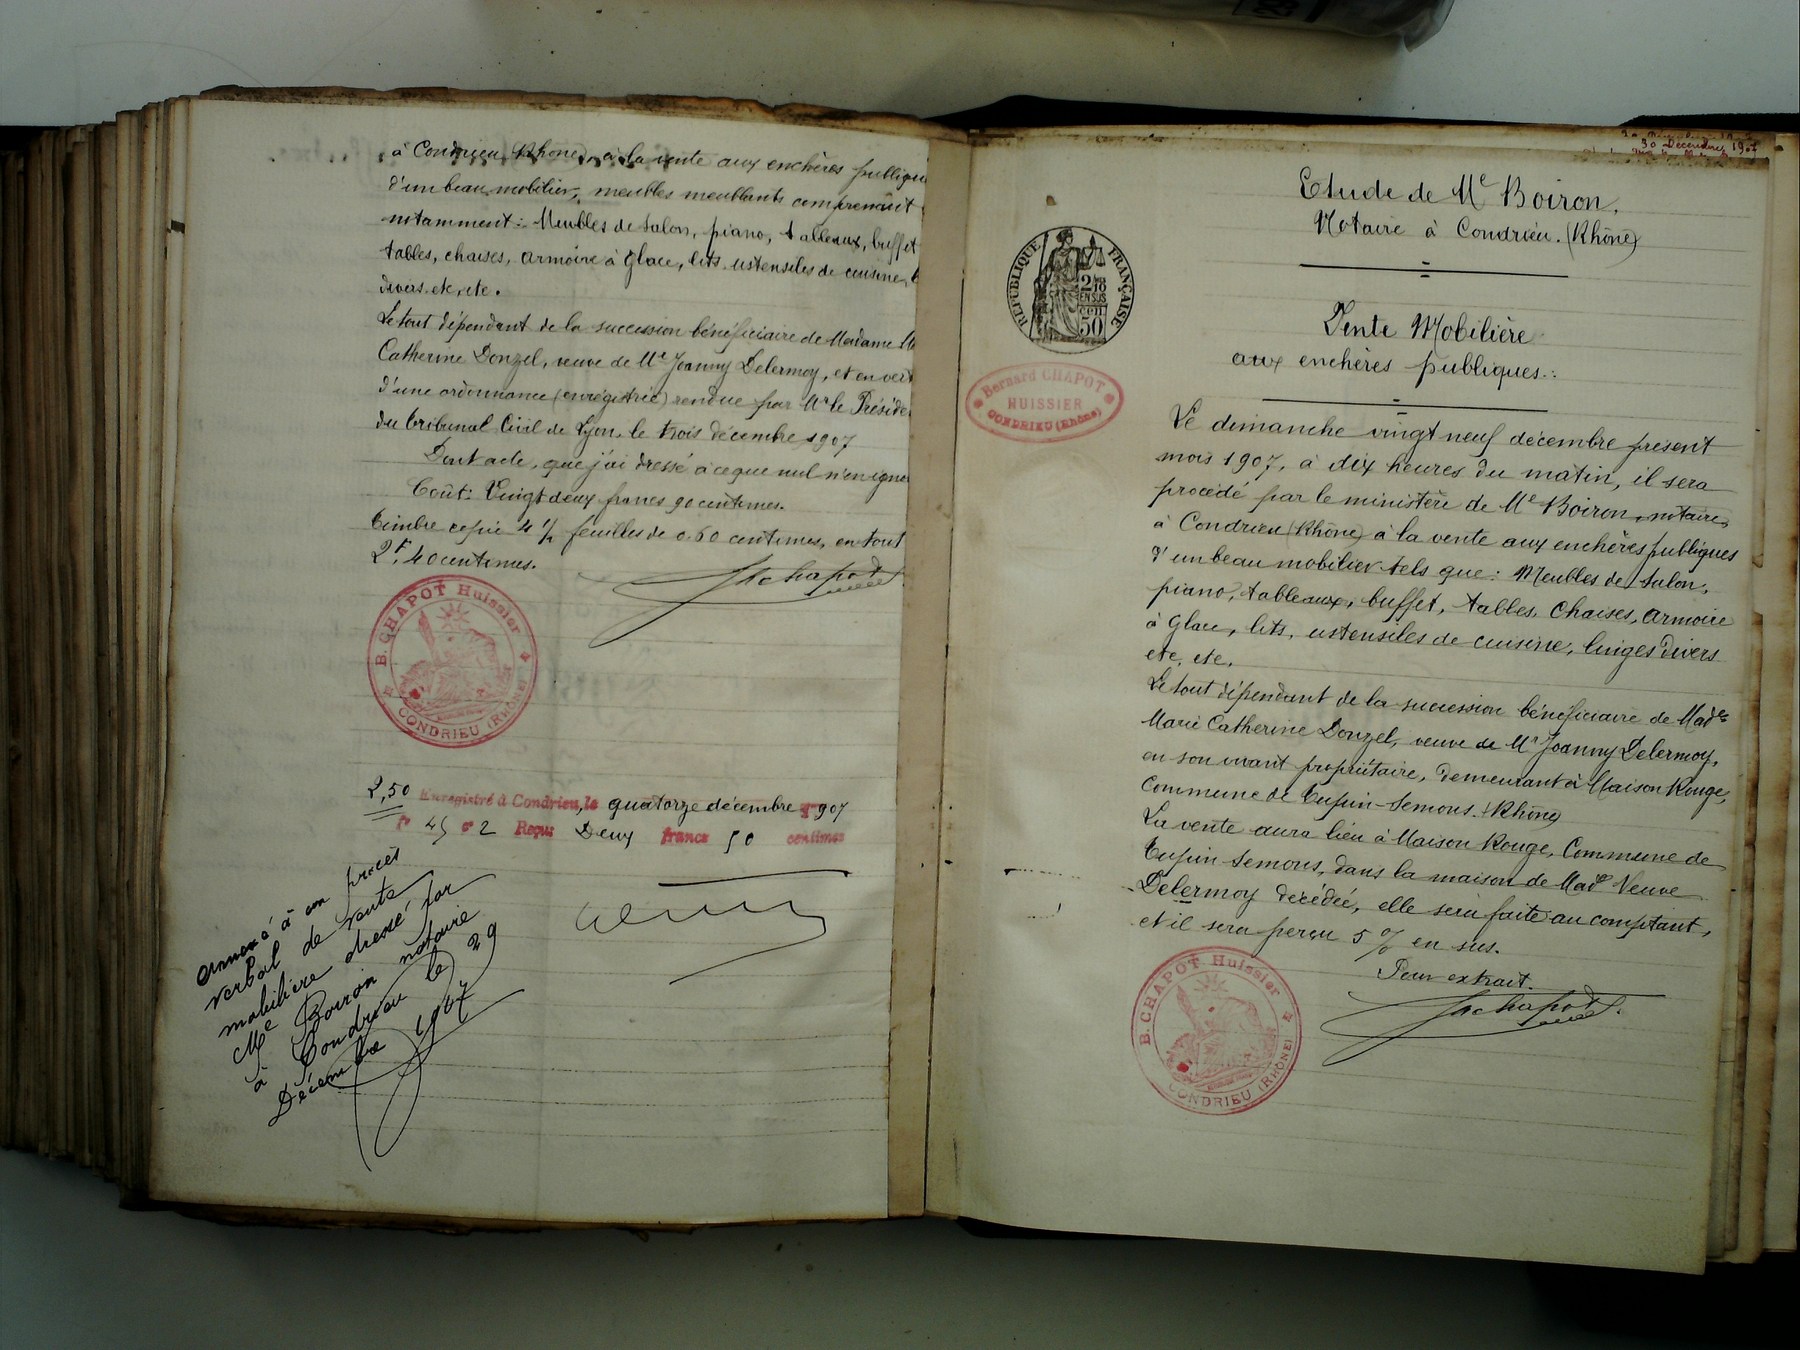 à Condrieu (Rhône), à la vente aux enchères publiques
d'un beau mobilier, meubles meublants comprenant
notamment: Meubles de salon, piano, tableaux, buffet
tables, chaises, armoire à glace, lits, ustensiles de cuisine,
divers etc, etc.
Le tout dépendant de la succession bénéficiaire de Madame
Catherine Donzel, veuve de Mr Joanny Delermoy, et en vert
d'une ordonnance (enregistrée) rendue par Mr le Préside
du tribunal Civil de Lyon, le trois décembre 1907
Dont acte, que j'ai dressé à ce que nul n'en ignore
Coût: Vingt deux francs 90 centimes.
Timbre copie 4 1/2 feuilles de 0.60 centimes, en tout
2f, 40 centimes.
B. CHAPOT Huissier
CONDRIEU (RHÔNE)
2,50 Enregistré à Condrieu, le quatorze décembre 1907
fo 45 co 2 Reçu: Deux francs 50 centimes
annexé à un procès
verbal de vente
mobilière dressé par
Me Boiron notaire
à Condrieu le 29
Décembre 1907
30 Décembre 1907
Etude de Me Boiron.
Notaire à Condrieu. (Rhône)
RÉPUBLIQUE FRANÇAISE
2/10
EN SUS
50
Bernard CHAPOT
HUISSIER
CONDRIEU (Rhône)
Vente Mobilière
aux enchères publiques.:
Le dimanche vingt neuf décembre présent
mois 1907, à dix heures du matin, il sera
procédé par le ministère de Me Boiron, notaire,
à Condrieu (Rhône) à la vente aux enchères publiques
d'un beau mobilier tels que: Meubles de salon,
piano, tableaux, buffet, tables, chaises, armoire
à glace, lits, ustensiles de cuisine, linges divers
etc, etc.
Le tout dépendant de la succession bénéficiaire de Made
Marie Catherine Donzel, veuve de Mr Joanny Delermoy,
en son vivant propriétaire, demeurant à Maison Rouge,
Commune de Tupin-Semons. (Rhône)
La vente aura lieu à Maison Rouge, Commune de
Tupin-Semons, dans la maison de Made Veuve
Delermoy décédée, elle sera faite au comptant,
et il sera perçu 5 % en sus.
Pour extrait.
B. CHAPOT Huissier
CONDRIEU (RHÔNE)